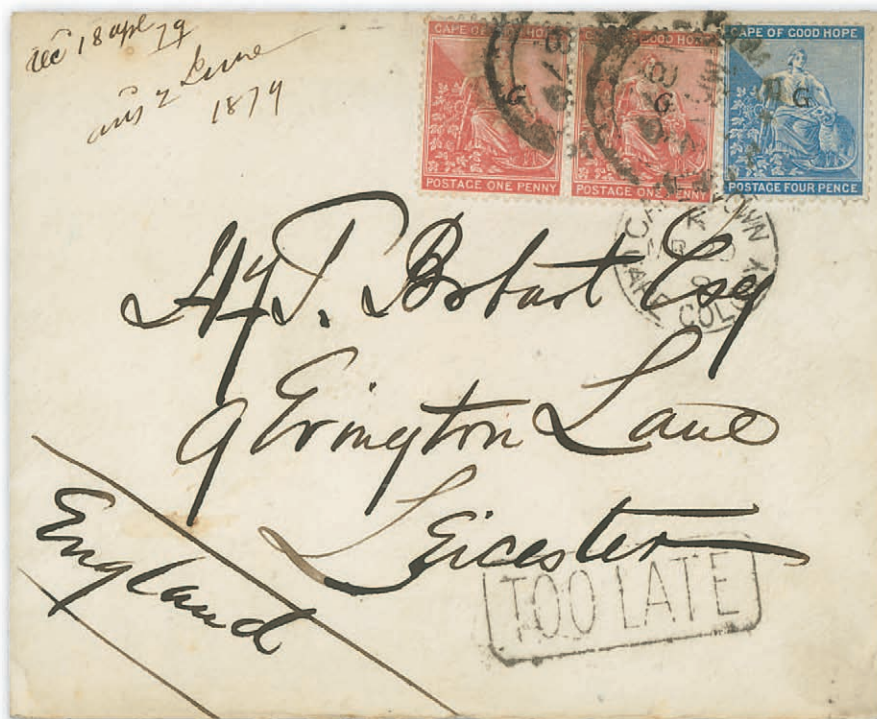 rec 18 apl 79
ans 2 June
1879
CAPE OF GOOD HOPE
G
POSTAGE ONE PENNY
CAPE OF GOOD HOPE
G
POSTAGE ONE PENNY
CAPE OF GOOD HOPE
G
POSTAGE FOUR PENCE
COLONY
H. J. T. Bobart Esq
9 Evington Lane
Leicester
England
TOO LATE